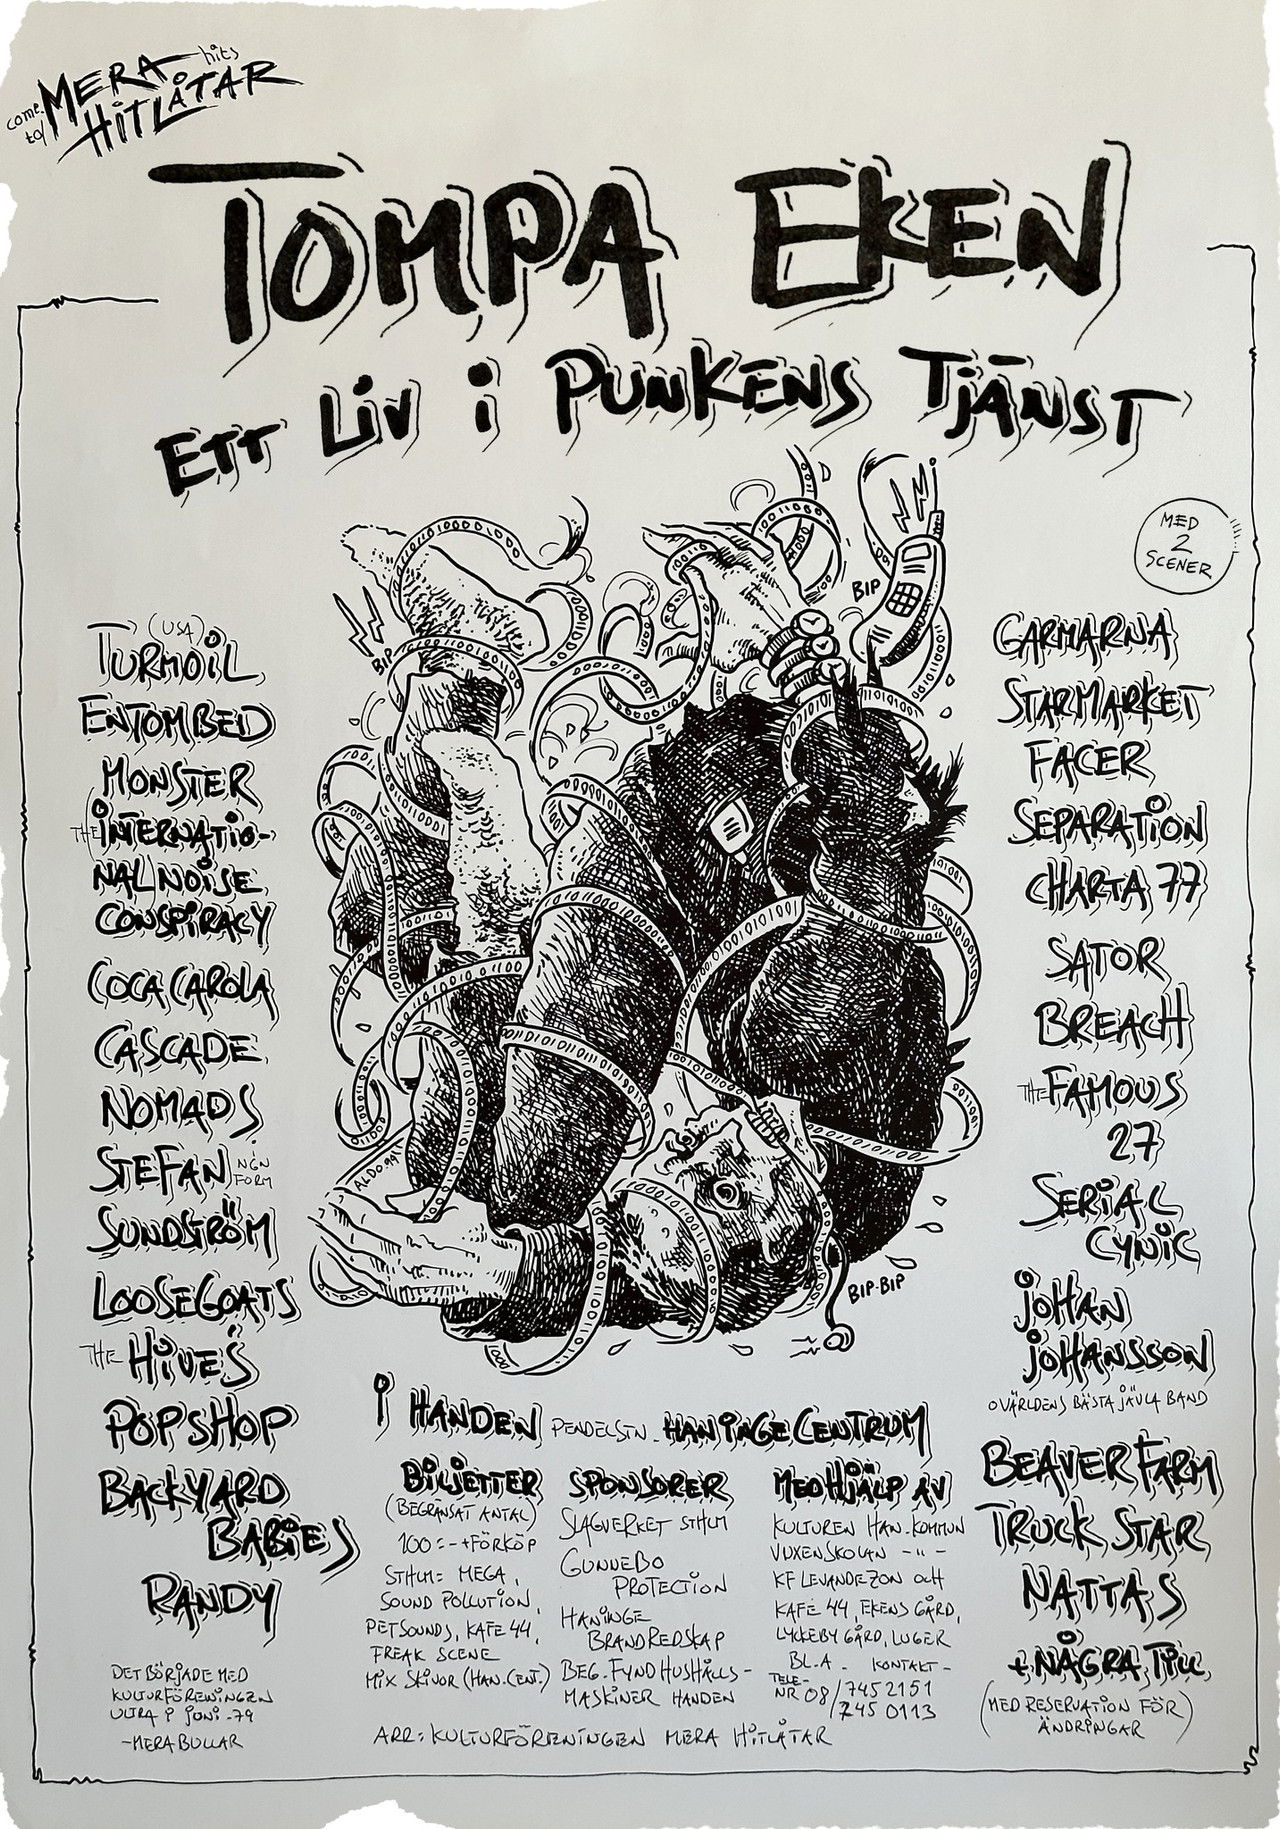 come to/ MERA hits
HITLÅTAR
TOMPA EKEN
ETT LIV I PUNKENS TJÄNST
MED
2
SCENER
BIP
BIP
BIP-BIP
ALDO.99
TURMOIL (USA)
ENTOMBED
MONSTER
THE INTERNATIO-
NAL NOISE
CONSPIRACY
COCA CAROLA
CASCADE
NOMADS
STEFAN I NGN FORM
SUNDSTRÖM
LOOSEGOATS
THE HIVES
POPSHOP
BACKYARD
BABIES
RANDY
DET BÖRJADE MED
KULTURFÖRENINGEN
ULTRA I JUNI -79
-MERA BULLAR
GARMARNA
STARMARKET
FACER
SEPARATION
CHARTA 77
SATOR
BREACH
THE FAMOUS
27
SERIAL
CYNIC
JOHAN
JOHANSSON
O VÄRLDENS BÄSTA JÄVLA BAND
BEAVER FARM
TRUCK STAR
NATTAS
+ NÅGRA TILL
(MED RESERVATION FÖR
ÄNDRINGAR)
I HANDEN PENDELSTN. HANINGE CENTRUM
BILJETTER
(BEGRÄNSAT ANTAL)
100:- +FÖRKÖP
STHLM: MEGA,
SOUND POLLUTION,
PETSOUNDS, KAFE 44,
FREAK SCENE
MIX SKIVOR (HAN.CENT.)
SPONSORER
SLAGVERKET STHLM
GUNNEBO
PROTECTION
HANINGE
BRANDREDSKAP
BEG. FYND HUSHÅLLS-
MASKINER HANDEN
MED HJÄLP AV
KULTUREN HAN. KOMMUN
VUXENSKOLAN -"-
KF LEVANDE ZON OCH
KAFE 44, EKENS GÅRD,
LYCKEBY GÅRD, LUGER
BL.A. KONTAKT-
TELE-
NR 08/7452151
745 0113
ARR: KULTURFÖRENINGEN MERA HITLÅTAR